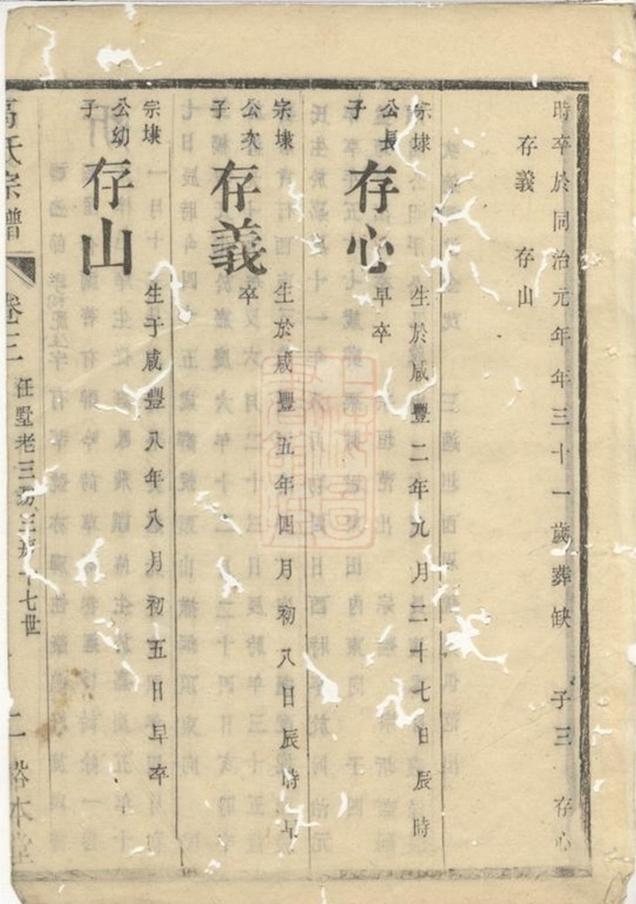 時卒於同治元年年三十一歲葬缺 子三 存心
存義 存山
宗埭
公長
子
存心
生於咸豐二年九月二十七日辰時
早卒
宗埭
公次
子
存義
生於咸豐五年四月初八日辰時早
卒
宗埭
公幼
子
存山
生于咸豐八年八月初五日早卒
高氏宗譜
卷三
任墅老三房三
十七世
二
本堂